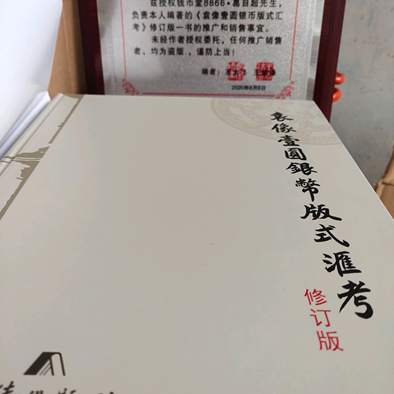 兹授权钱币堂8866·葛目超先生,
负责本人编著的《袁像壹圆银币版式汇
考》修订版一书的推广和销售事宜。
未经作者授权委托,任何推广销售
者、均为盗版,谨防上当!
编者:
2020年8月8日
袁像壹圓銀幣版式滙考
修订版